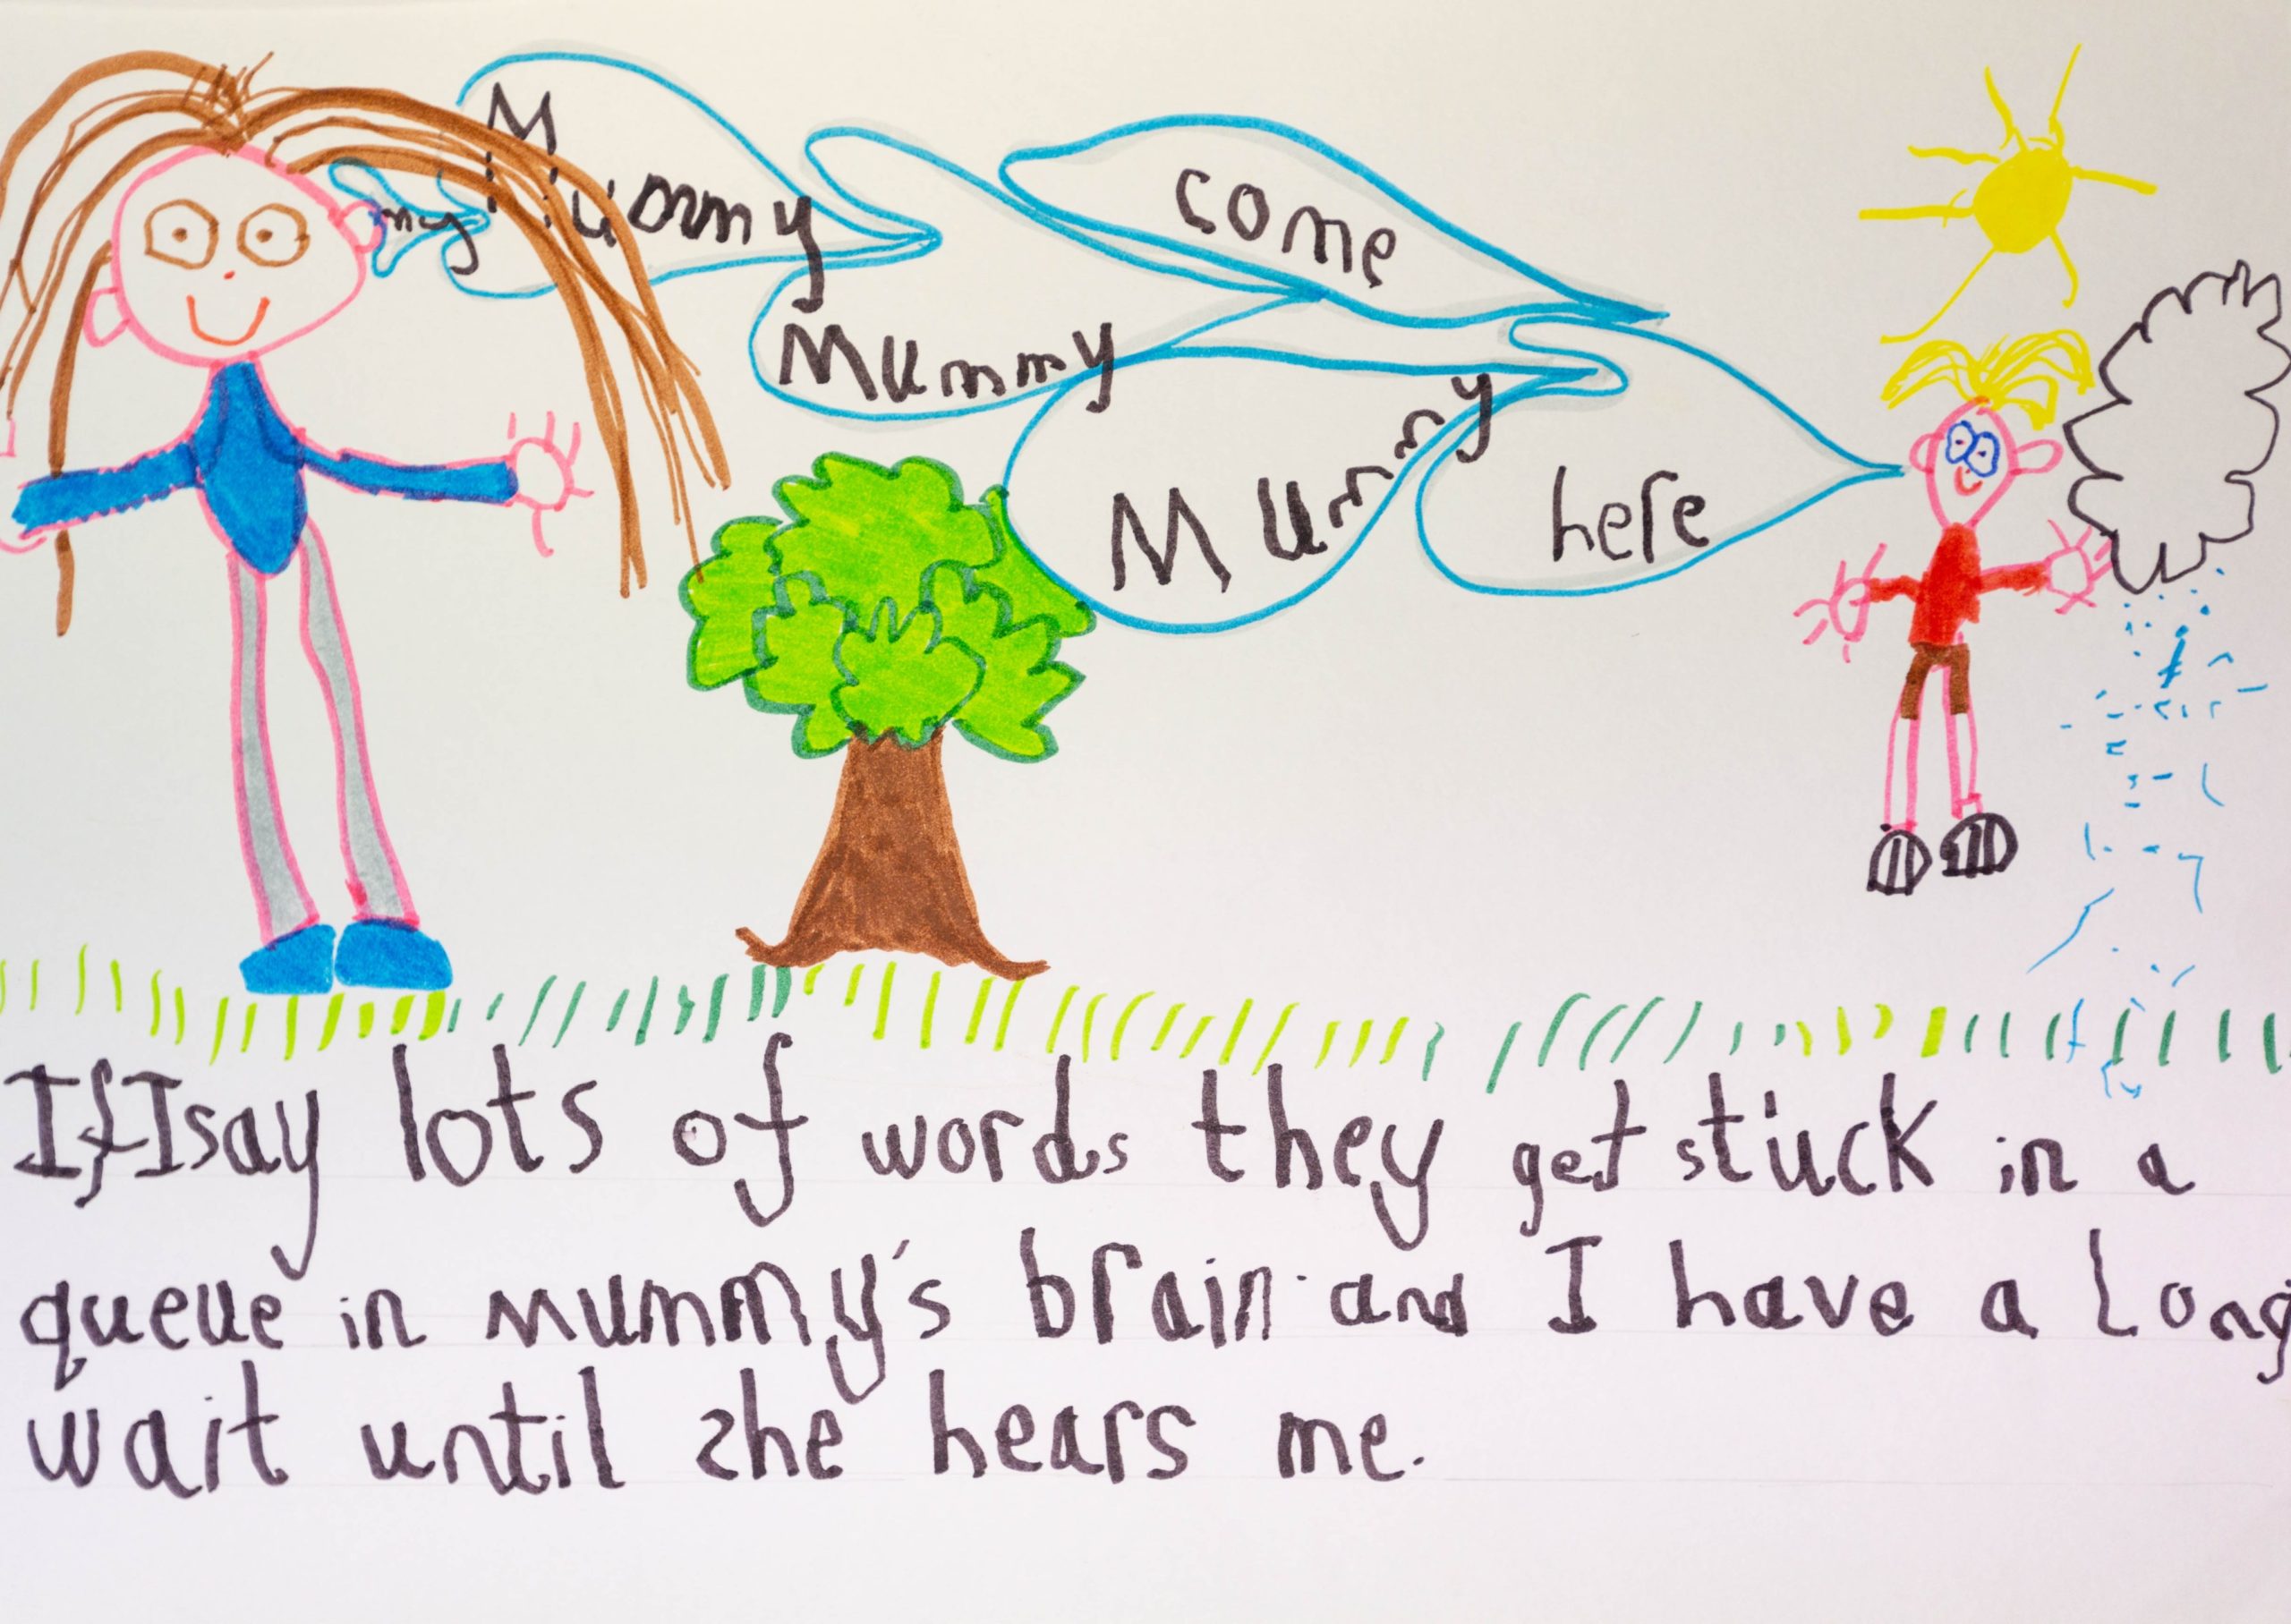 my
Mummy
Mummy
come
Mummy
here
If I say lots of words they get stuck in a
queue in mummy's brain and I have a long
wait until she hears me.